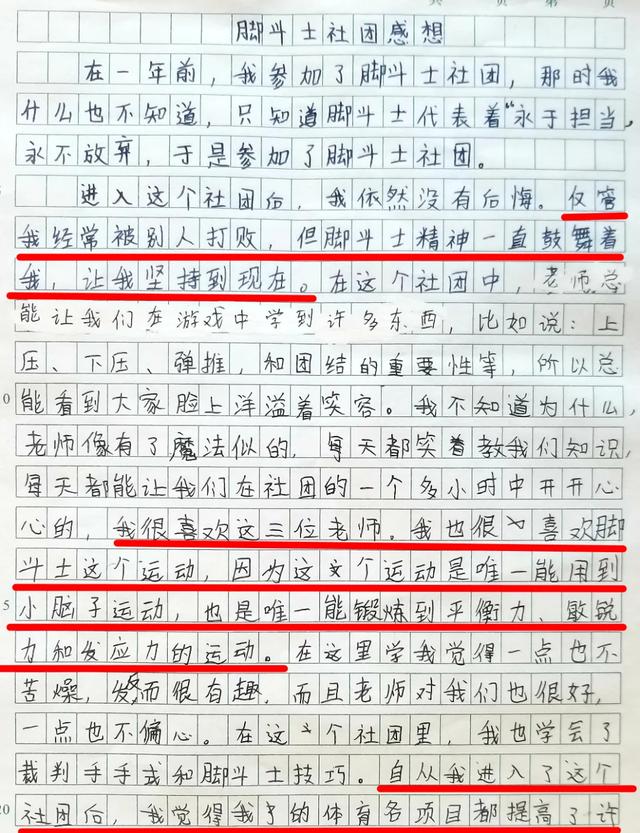 共 页 第 页
脚斗士社团感想
在一年前，我参加了脚斗士社团，那时我
什么也不知道，只知道脚斗士代表着“永于担当，
永不放弃，于是参加了脚斗士社团。
进入这个社团后，我依然没有后悔。仅管
我经常被别人打败，但脚斗士精神一直鼓舞着
我，让我坚持到现在。在这个社团中，老师总
能让我们在游戏中学到许多东西，比如说：上
压、下压、弹推，和团结的重要性等，所以总
能看到大家脸上洋溢着笑容。我不知道为什么，
老师像有了魔法似的，每天都笑着教我们知识，
每天都能让我们在社团的一个多小时中开开心
心的，我很喜欢这三位老师。我也很喜欢脚
斗士这个运动，因为这个运动是唯一能用到
小脑子运动，也是唯一能锻炼到平衡力、敏锐
力和发应力的运动。在这里学我觉得一点也不
苦燥，反而很有趣，而且老师对我们也很好，
一点也不偏心。在这个社团里，我也学会了
裁判手手式和脚斗士技巧。自从我进入了这个
社团后，我觉得我的体育各项目都提高了许